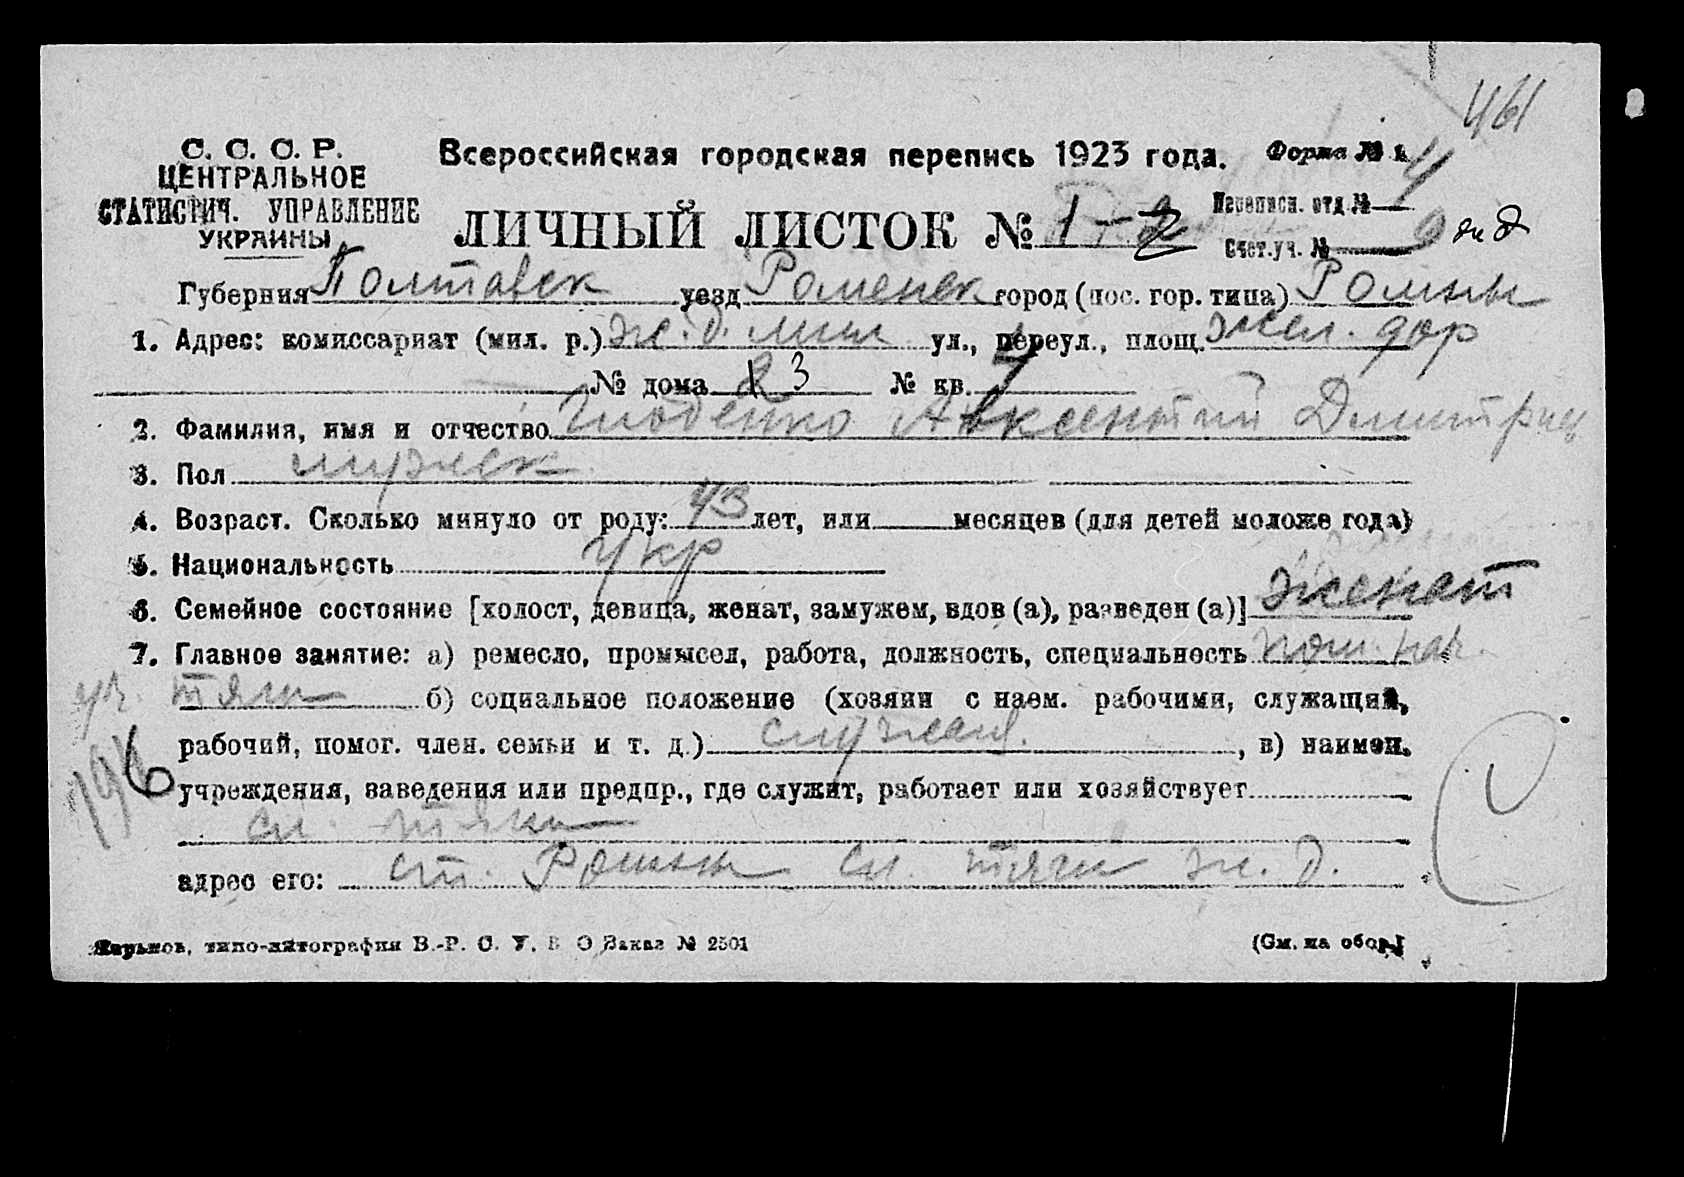 461
С. С. С. Р.
ЦЕНТРАЛЬНОЕ
СТАТИСТИЧ. УПРАВЛЕНИЕ
УКРАИНЫ
Всероссийская городская перепись 1923 года.
Форма № 1
ЛИЧНЫЙ ЛИСТОК № 1-2
Переписн. отд. № 4
Счет. уч. № 9 ж д
Губерния Полтавск уезд Роменск город (пос. гор. типа) Ромны
1. Адрес: комиссариат (мил. р.) ж. д. мил ул., переул., площ. жел. дор
№ дома 3 № кв.
2. Фамилия, имя и отчество Авксентий Дмитриев
3. Пол мужск.
4. Возраст. Сколько минуло от роду: 43 лет, или месяцев (для детей моложе года)
5. Национальность укр
6. Семейное состояние [холост, девица, женат, замужем, вдов (а), разведен (а)] женат
7. Главное занятие: а) ремесло, промысел, работа, должность, специальность пом. нач.
уч. тяги б) социальное положение (хозяин с наем. рабочими, служащий,
рабочий, помог. член. семьи и т. д.) служащ. , в) наимен.
учреждения, заведения или предпр., где служит, работает или хозяйствует
сл. тяги
адрес его: ст. Ромны сл. тяги ж. д.
Харьков, типо-литография В.-Р. С. У. В О Заказ № 2501
(См. на обор.)